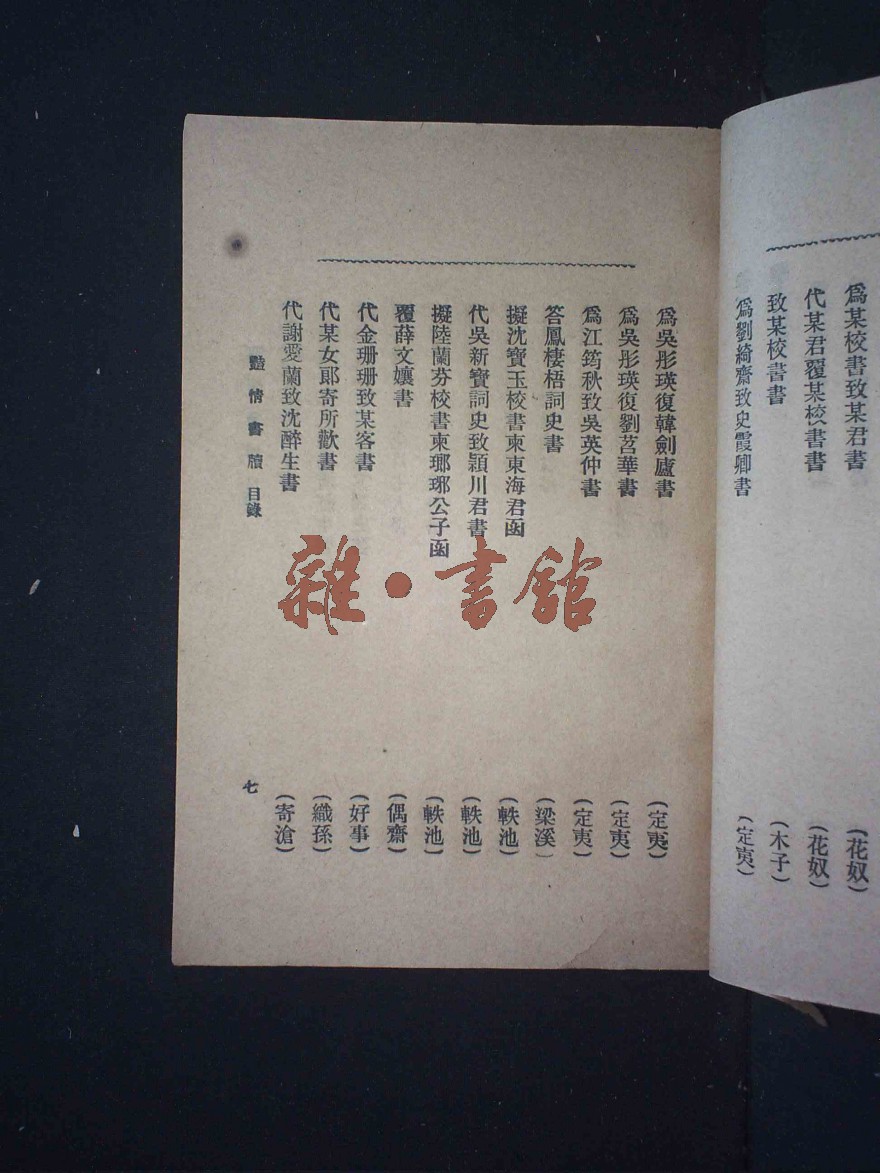 爲某校書致某君書 (花奴)
代某君覆某校書書 (花奴)
致某校書書 (木子)
爲劉綺齋致史霞卿書 (定夷)
爲吳彤瑛復韓劍廬書 (定夷)
爲吳彤瑛復劉苕華書 (定夷)
爲江筠秋致吳英仲書 (定夷)
答鳳棲梧詞史書 (梁溪)
擬沈寶玉校書柬東海君函 (軼池)
代吳新寶詞史致潁川君書 (軼池)
擬陸蘭芬校書柬瑯琊公子函 (軼池)
覆薛文孃書 (偶齋)
代金珊珊致某客書 (好事)
代某女郎寄所歡書 (織孫)
代謝愛蘭致沈醉生書 (寄滄)
豔情書牘 目錄 七
雜·書館